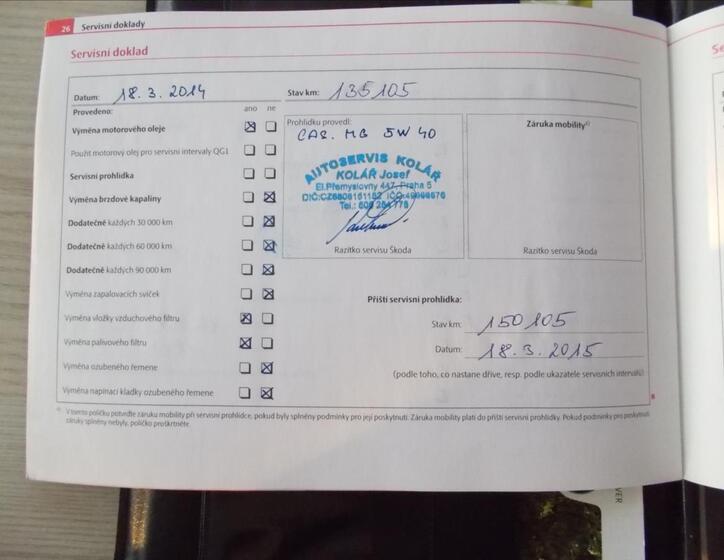 26 Servisní doklady
Servisní doklad
Datum: 18. 3. 2014 Stav km: 135105
Provedeno: ano ne
Výměna motorového oleje
Použit motorový olej pro servisní intervaly QG1
Servisní prohlídka
Výměna brzdové kapaliny
Dodatečné každých 30 000 km
Dodatečné každých 60 000 km
Dodatečné každých 90 000 km
Výměna zapalovacích svíček
Výměna vložky vzduchového filtru
Výměna palivového filtru
Výměna ozubeného řemene
Výměna napínací kladky ozubeného řemene
Prohlídku provedl:
CAS. MG 5W 40
AUTOSERVIS KOLÁŘ
KOLÁŘ Josef
El.Přemyslovny 447, Praha 5
Tel.:
Razítko servisu Škoda
Záruka mobility*)
Razítko servisu Škoda
Příští servisní prohlídka:
Stav km: 150105
Datum: 18. 3. 2015
(podle toho, co nastane dříve, resp. podle ukazatele servisních intervalů)
*) V tomto políčku potvrďte záruku mobility při servisní prohlídce, pokud byly splněny podmínky pro její poskytnutí. Záruka mobility platí do příští servisní prohlídky. Pokud podmínky pro poskytnutí
záruky splněny nebyly, políčko proškrtněte.